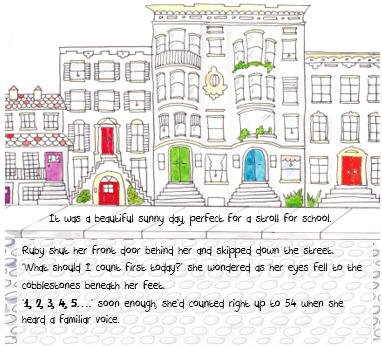 It was a beautiful sunny day, perfect for a stroll for school.
Ruby shut her front door behind her and skipped down the street.
"What should I count first today?" she wondered as her eyes fell to the
cobblestones beneath her feet.
"1, 2, 3, 4, 5...." soon enough, she'd counted right up to 54 when she
heard a familiar voice.